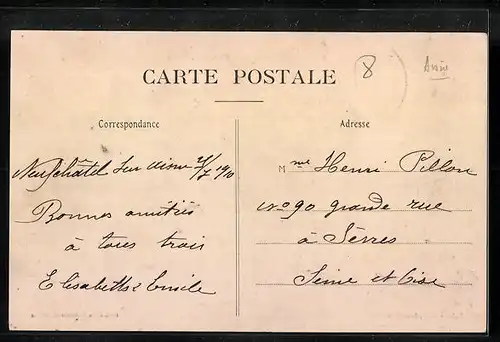 8
Aisne
CARTE POSTALE
Correspondance
Adresse
Neufchâtel sur aisne 2/7 1910
Bonnes amitiés
à tous trois
Elisabeth & Emile
Mme Henri Pillon
No 90 grande rue
à Sèvres
Seine et Oise